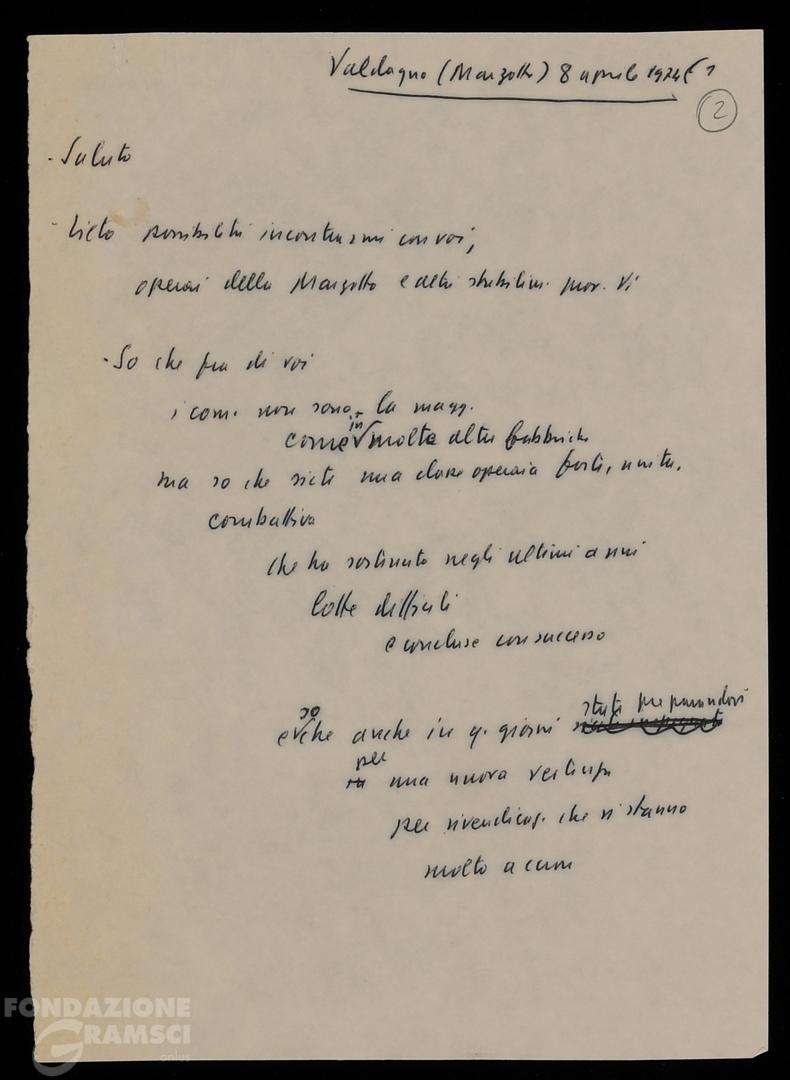 Valdagno (Marzotto) 8 aprile 1974 ( 1
2
- Saluto
- Lieto possibilità incontrarmi con voi,
operai della Marzotto e altri stabilim. prov. Vi
- So che fra di voi
i com. non sono la magg.
come in molte altre fabbriche
ma so che siete una classe operaia forte, unita,
combattiva
che ha sostenuto negli ultimi anni
lotte difficili
e concluse con successo
e so che anche in q. giorni state preparandovi
per una nuova vertenza
per rivendicaz. che vi stanno
molto a cuore
FONDAZIONE
GRAMSCI
onlus